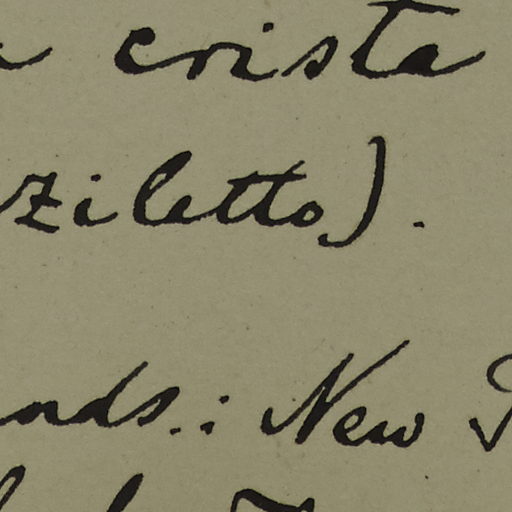 crista
ziletto).
nds.: New